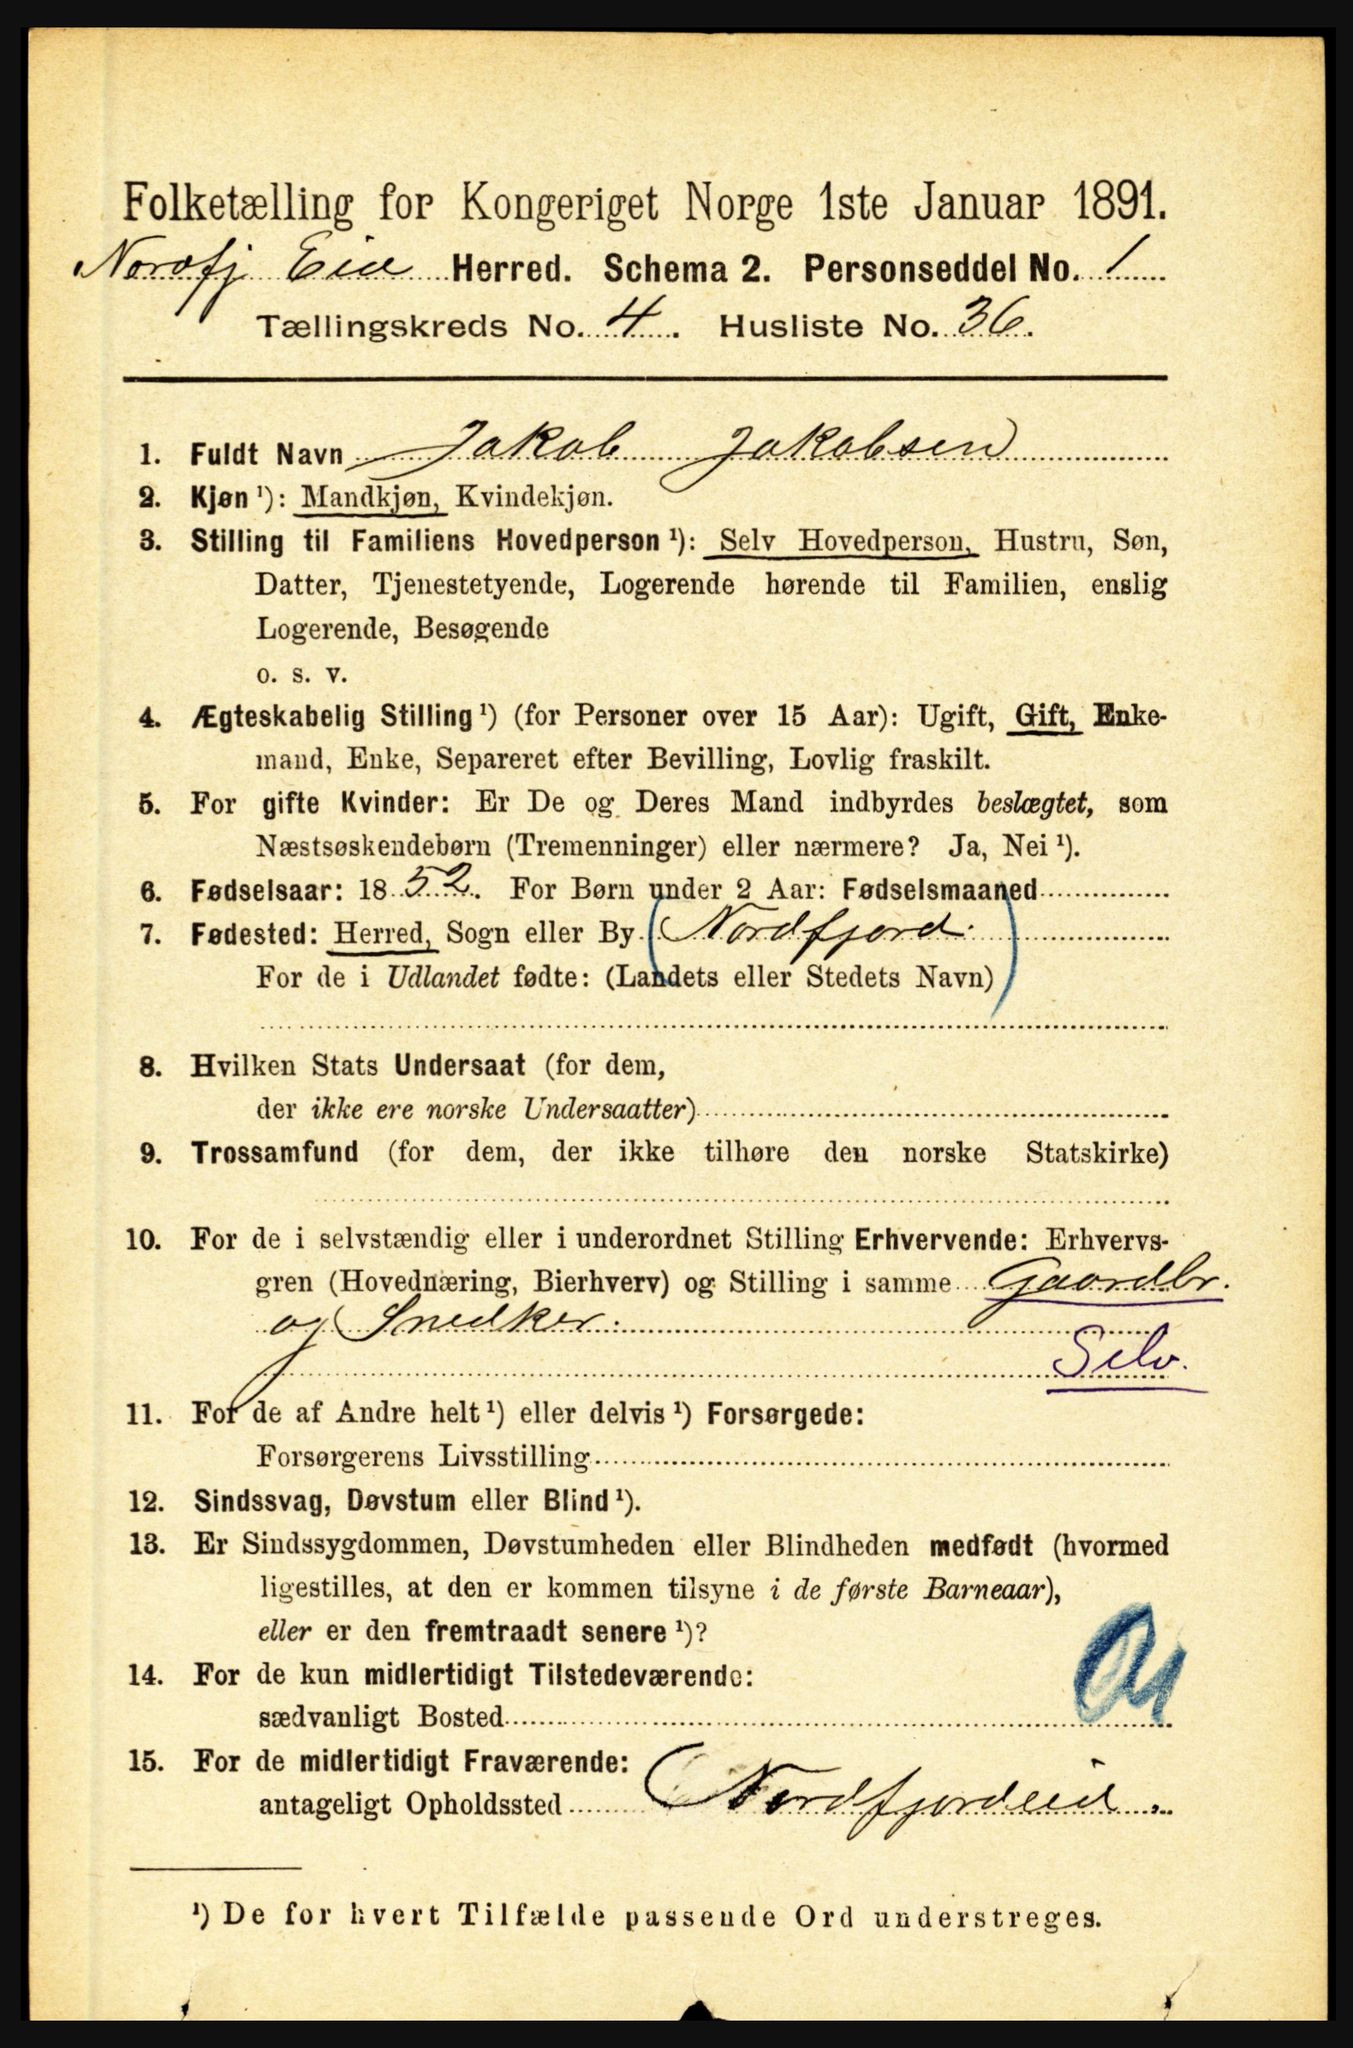 Folketælling for Kongeriget Norge 1ste Januar 1891.
Nordfj Eid Herred. Schema 2. Personseddel No. 1
Tællingskreds No. 4. Husliste No. 36.
1. Fuldt Navn Jakob Jakobsen
2. Kjøn ¹): Mandkjøn, Kvindekjøn.
3. Stilling til Familiens Hovedperson ¹): Selv Hovedperson, Hustru, Søn,
Datter, Tjenestetyende, Logerende hørende til Familien, enslig
Logerende, Besøgende
o. s. v.
4. Ægteskabelig Stilling ¹) (for Personer over 15 Aar): Ugift, Gift, Enke-
mand, Enke, Separeret efter Bevilling, Lovlig fraskilt.
5. For gifte Kvinder: Er De og Deres Mand indbyrdes beslægtet, som
Næstsøskendebørn (Tremenninger) eller nærmere? Ja, Nei ¹).
6. Fødselsaar: 1852. For Børn under 2 Aar: Fødselsmaaned
7. Fødested: Herred, Sogn eller By (Nordfjord.
For de i Udlandet fødte: (Landets eller Stedets Navn)
8. Hvilken Stats Undersaat (for dem,
der ikke ere norske Undersaatter)
9. Trossamfund (for dem, der ikke tilhøre den norske Statskirke)
10. For de i selvstændig eller i underordnet Stilling Erhvervende: Erhvervs-
gren (Hovednæring, Bierhverv) og Stilling i samme Gaardbr.
og Snedker.
Selv.
11. For de af Andre helt ¹) eller delvis ¹) Forsørgede:
Forsørgerens Livsstilling
12. Sindssvag, Døvstum eller Blind ¹).
13. Er Sindssygdommen, Døvstumheden eller Blindheden medfødt (hvormed
ligestilles, at den er kommen tilsyne i de første Barneaar),
eller er den fremtraadt senere ¹)?
14. For de kun midlertidigt Tilstedeværende:
sædvanligt Bosted
15. For de midlertidigt Fraværende:
antageligt Opholdssted Nordfjordeid.
¹) De for hvert Tilfælde passende Ord understreges.